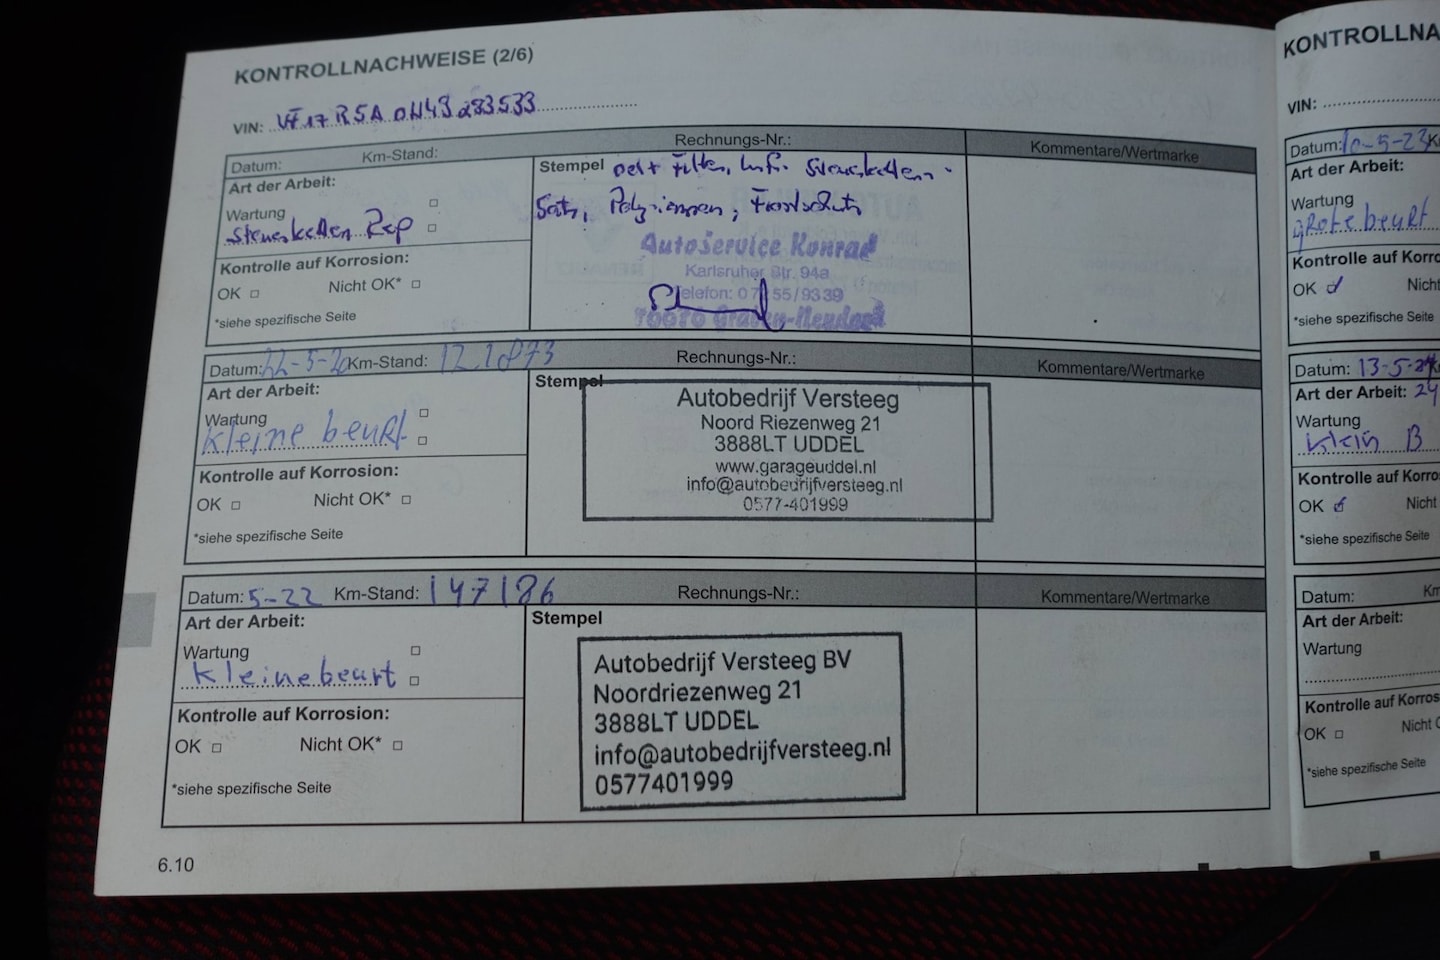 KONTROLLNACHWEISE (2/6)
VIN: VF17R5A0H49283533
Datum: Km-Stand: Rechnungs-Nr.: Kommentare/Wertmarke
Art der Arbeit:
Wartung
Steuerketten Rep
Kontrolle auf Korrosion:
OK Nicht OK*
*siehe spezifische Seite
Stempel Oel + Filter, Steuerketten-
Satz, Frostschutz
AutoService Konrad
Karlsruher Str. 94a
Telefon: 07255/9339
Graben-Neudorf
Datum: 22-5-20 Km-Stand: 121873 Rechnungs-Nr.: Kommentare/Wertmarke
Art der Arbeit:
Wartung
kleine beurt
Kontrolle auf Korrosion:
OK Nicht OK*
*siehe spezifische Seite
Stempel
Autobedrijf Versteeg
Noord Riezenweg 21
3888LT UDDEL
www.garageuddel.nl
info@autobedrijfversteeg.nl
0577-401999
Datum: 5-22 Km-Stand: 147186 Rechnungs-Nr.: Kommentare/Wertmarke
Art der Arbeit:
Wartung
kleine beurt
Kontrolle auf Korrosion:
OK Nicht OK*
*siehe spezifische Seite
Stempel
Autobedrijf Versteeg BV
Noordriezenweg 21
3888LT UDDEL
info@autobedrijfversteeg.nl
0577401999
6.10
KONTROLLNA
VIN:
Datum: 10-5-23 K
Art der Arbeit:
Wartung
grote beurt
Kontrolle auf Korro
OK Nicht
*siehe spezifische Seite
Datum: 13-5-24
Art der Arbeit:
Wartung
klein B
Kontrolle auf Korro
OK Nicht
*siehe spezifische Seite
Datum: Km
Art der Arbeit:
Wartung
Kontrolle auf Korros
OK Nicht O
*siehe spezifische Seite